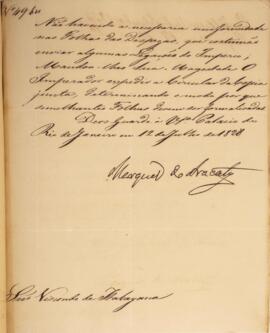 Nº 49
Não havendo a necessaria uniformidade
nas Folhas das Despezas, que costumão
enviar algumas Legações do Imperio,
Mandou Sua Magestade O
Imperador expedir a Circular da copia
junta, determinando o modo por que
semelhantes Folhas devem ser formalizadas
Deos Guarde a VExª Palacio do
Rio de Janeiro em 12 de Julho de 1828
Marquez do Aracaty
Snr Visconde de Itabayana